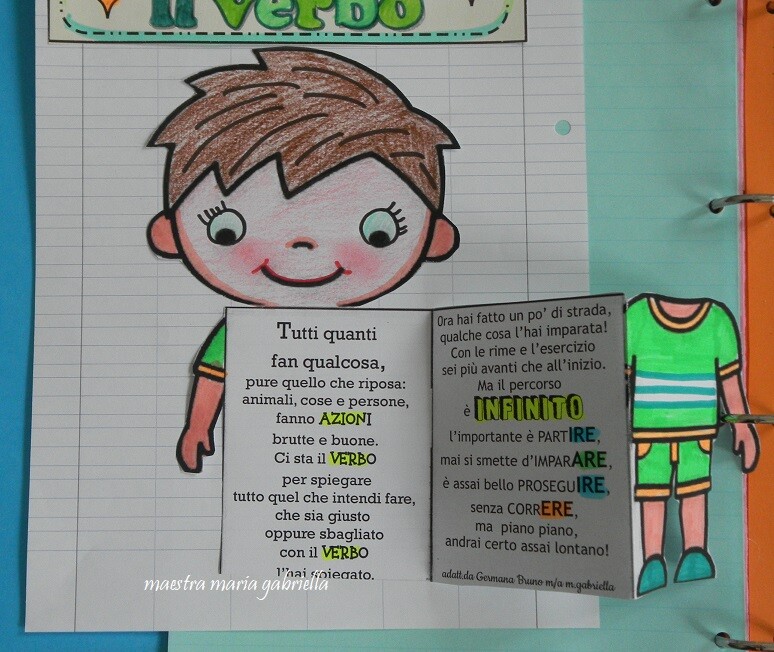 Il verbo
Tutti quanti
fan qualcosa,
pure quello che riposa:
animali, cose e persone,
fanno AZIONI
brutte e buone.
Ci sta il VERBO
per spiegare
tutto quel che intendi fare,
che sia giusto
oppure sbagliato
con il VERBO
l'hai spiegato.
Ora hai fatto un po' di strada,
qualche cosa l'hai imparata!
Con le rime e l'esercizio
sei più avanti che all'inizio.
Ma il percorso
è INFINITO
l'importante è PARTIRE,
mai si smette d'IMPARARE,
è assai bello PROSEGUIRE,
senza CORRERE,
ma piano piano,
andrai certo assai lontano!
adatt.da Germana Bruno m/a m.gabriella
maestra maria gabriella